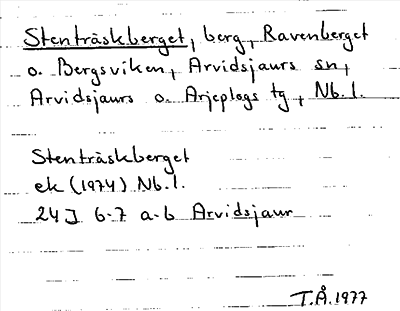 Stenträskberget, berg, Ravenberget
o. Bergsviken, Arvidsjaurs sn,
Arvidsjaurs o. Arjeplogs tg, Nb. l.
Stenträskberget
ek (1974) Nb. l.
24J 6-7 a-b Arvidsjaur
T.Å. 1977